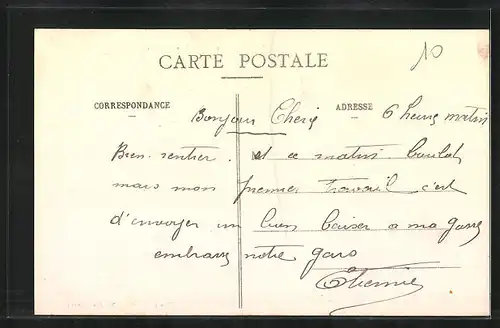 CARTE POSTALE
10
CORRESPONDANCE
ADRESSE
Bonjour Cherie 6 heures matin
Bien rentrer. et ce matin boulot
mais mon premier travail c'est
d'envoyer un bien baiser a ma
embrasse notre gars